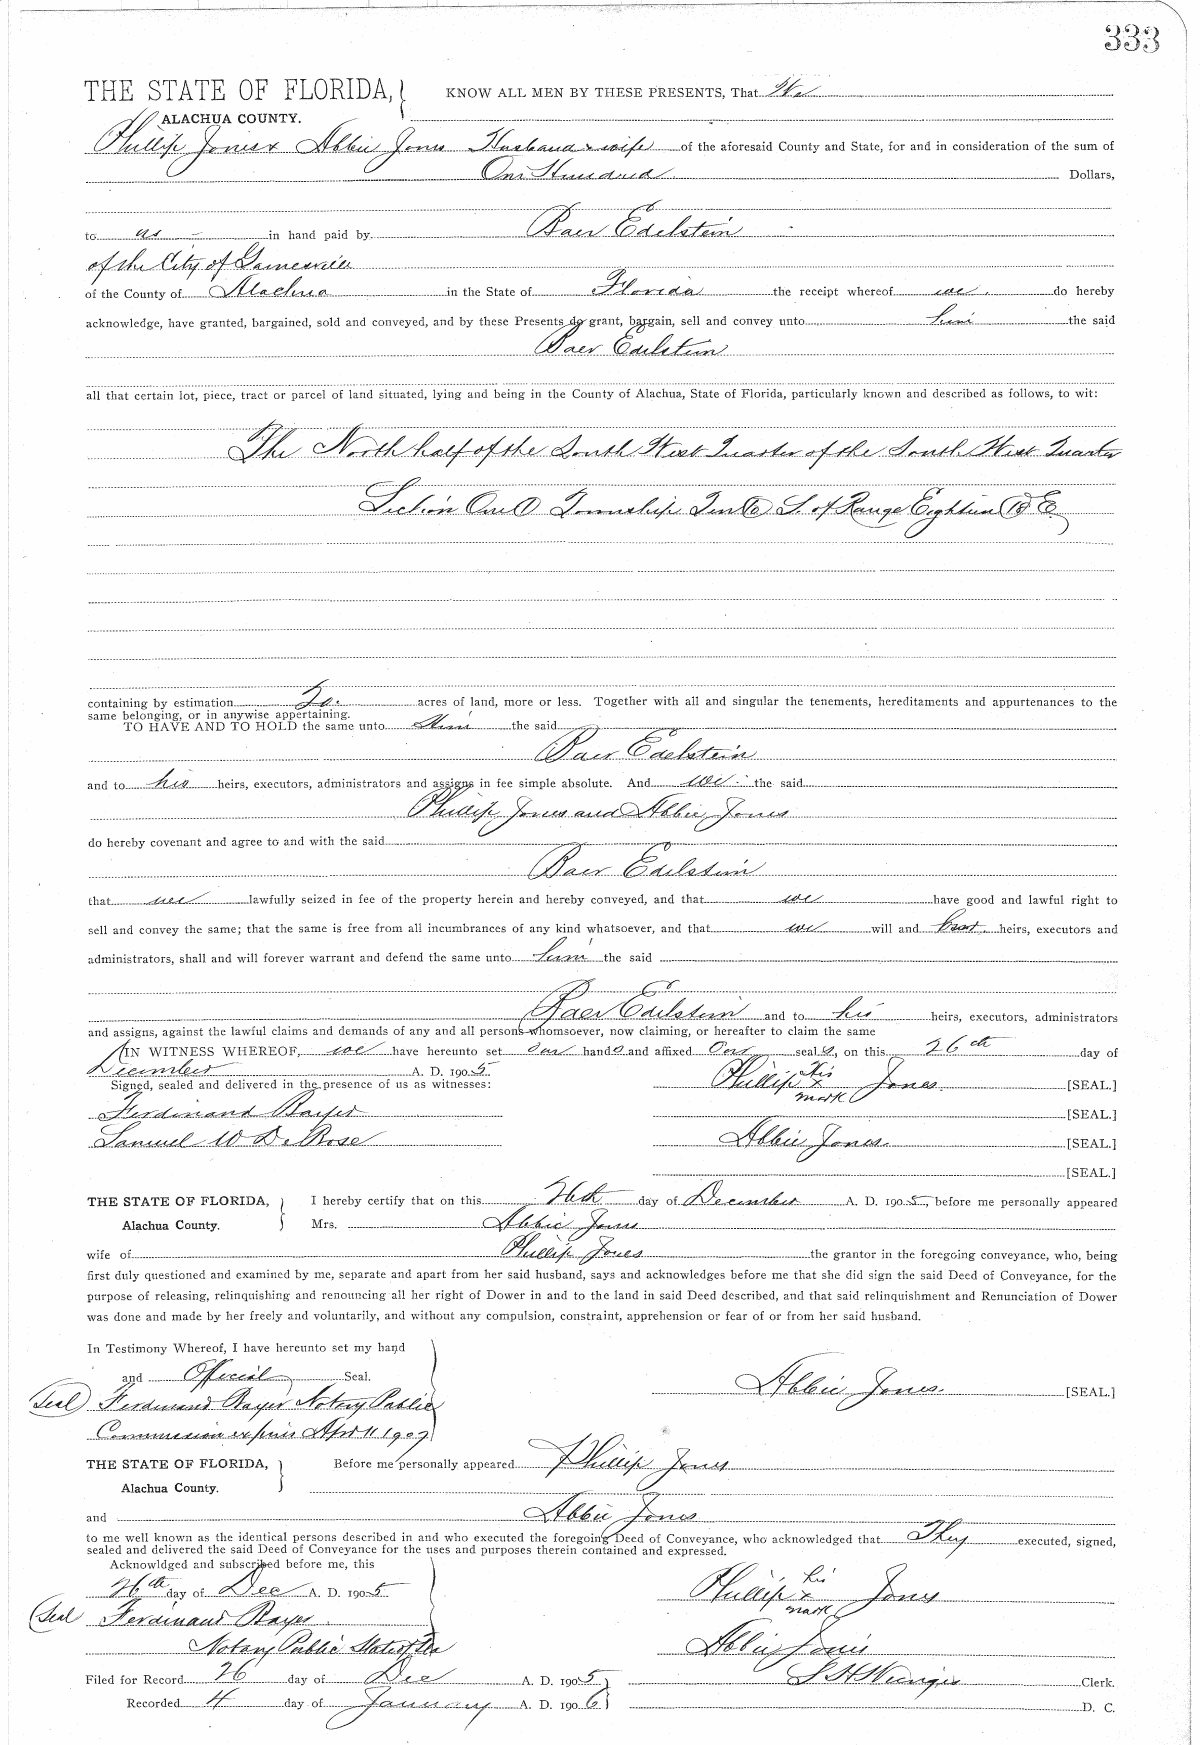 333
THE STATE OF FLORIDA, KNOW ALL MEN BY THESE PRESENTS, That We
ALACHUA COUNTY.
Phillip Jones & Abbie Jones Husband & wife of the aforesaid County and State, for and in consideration of the sum of
One Hundred Dollars,
to us in hand paid by Baer Edelstein
of the City of Gainesville
of the County of Alachua in the State of Florida the receipt whereof we do hereby
acknowledge, have granted, bargained, sold and conveyed, and by these Presents do grant, bargain, sell and convey unto him the said
Baer Edelstein
all that certain lot, piece, tract or parcel of land situated, lying and being in the County of Alachua, State of Florida, particularly known and described as follows, to wit:
The North half of the South West Quarter of the South West Quarter
Section One (1) Township Ten (10) S. of Range Eighteen (18) E
containing by estimation 20. acres of land, more or less. Together with all and singular the tenements, hereditaments and appurtenances to the
same belonging, or in anywise appertaining.
TO HAVE AND TO HOLD the same unto Him the said
Baer Edelstein
and to his heirs, executors, administrators and assigns in fee simple absolute. And we the said
Phillip Jones and Abbie Jones
do hereby covenant and agree to and with the said
Baer Edelstein
that we lawfully seized in fee of the property herein and hereby conveyed, and that we have good and lawful right to
sell and convey the same; that the same is free from all incumbrances of any kind whatsoever, and that we will and heirs, executors and
administrators, shall and will forever warrant and defend the same unto him the said
Baer Edelstein and to his heirs, executors, administrators
and assigns, against the lawful claims and demands of any and all persons whomsoever, now claiming, or hereafter to claim the same
IN WITNESS WHEREOF, we have hereunto set our hands and affixed Our seals, on this 26th day of
December A. D. 1905
Signed, sealed and delivered in the presence of us as witnesses: Phillip His x mark Jones. [SEAL.]
Ferdinand Bayer [SEAL.]
Samuel W DeBose Abbie Jones. [SEAL.]
[SEAL.]
THE STATE OF FLORIDA, I hereby certify that on this 26th day of December A. D. 1905, before me personally appeared
Alachua County. Mrs. Abbie Jones
wife of Phillip Jones the grantor in the foregoing conveyance, who, being
first duly questioned and examined by me, separate and apart from her said husband, says and acknowledges before me that she did sign the said Deed of Conveyance, for the
purpose of releasing, relinquishing and renouncing all her right of Dower in and to the land in said Deed described, and that said relinquishment and Renunciation of Dower
was done and made by her freely and voluntarily, and without any compulsion, constraint, apprehension or fear of or from her said husband.
In Testimony Whereof, I have hereunto set my hand
and Official Seal. Abbie Jones. [SEAL.]
(Seal) Ferdinand Bayer Notary Public
Commission expires Apr 11 1909
THE STATE OF FLORIDA, Before me personally appeared Phillip Jones
Alachua County.
and Abbie Jones
to me well known as the identical persons described in and who executed the foregoing Deed of Conveyance, who acknowledged that They executed, signed,
sealed and delivered the said Deed of Conveyance for the uses and purposes therein contained and expressed.
Acknowldged and subscribed before me, this
26th day of Dec A. D. 1905 Phillip his x mark Jones
(Seal) Ferdinand Bayer.
Notary Public State of Fla Abbie Jones
Filed for Record 26 day of Dec A. D. 1905 S H Wienges Clerk.
Recorded 4 day of January A. D. 1906 D. C.